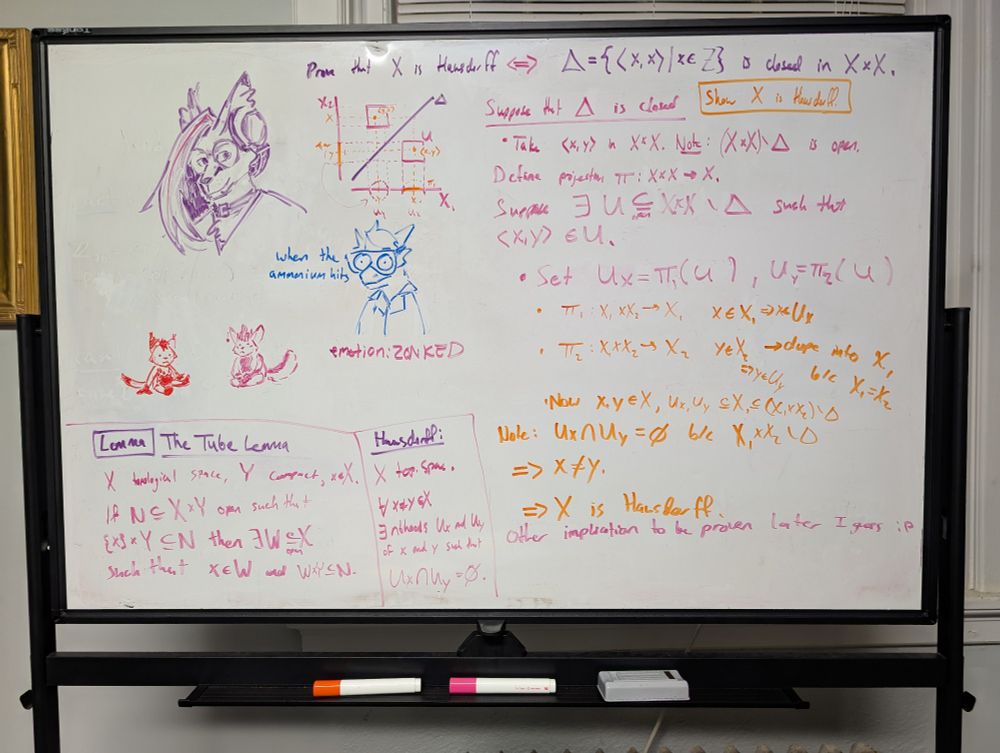 Prove that X is Hausdorff ⟺ Δ = {⟨x,x⟩ | x ∈ Z} is closed in X×X.
X₂
X
Δ
U
(x,y)
X₁
Suppose that Δ is closed
Show X is Hausdorff.
• Take ⟨x,y⟩ in X×X. Note: (X×X)\Δ is open.
Define projection π: X×X → X.
Suppose ∃ U ⊆ open X×X \ Δ such that
⟨x,y⟩ ∈ U.
• Set Ux = π₁(U), Uy = π₂(U)
• π₁: X₁×X₂ → X₁ x∈X₁ ⇒ x∈Ux
• π₂: X₁×X₂ → X₂ y∈X₂ → into X₁
⇒ y∈Uy b/c X₁=X₂
• Now x,y∈X, Ux,Uy ⊆ X₁ ⊆ (X₁×X₂)\Δ
Note: Ux∩Uy = ∅ b/c X₁×X₂\Δ
⇒ x≠y.
⇒ X is Hausdorff.
Other implication to be proven later I guess :P
when the
ammonium hits
emotion: ZONKED
Lemma The Tube Lemma
X topological space, Y compact, x∈X.
If N ⊆ X×Y open such that
{x}×Y ⊆ N then ∃W ⊆ open X
such that x∈W and W×Y ⊆ N.
Hausdorff:
X top. space.
∀ x≠y∈X
∃ nbhoods Ux and Uy
of x and y such that
Ux∩Uy = ∅.